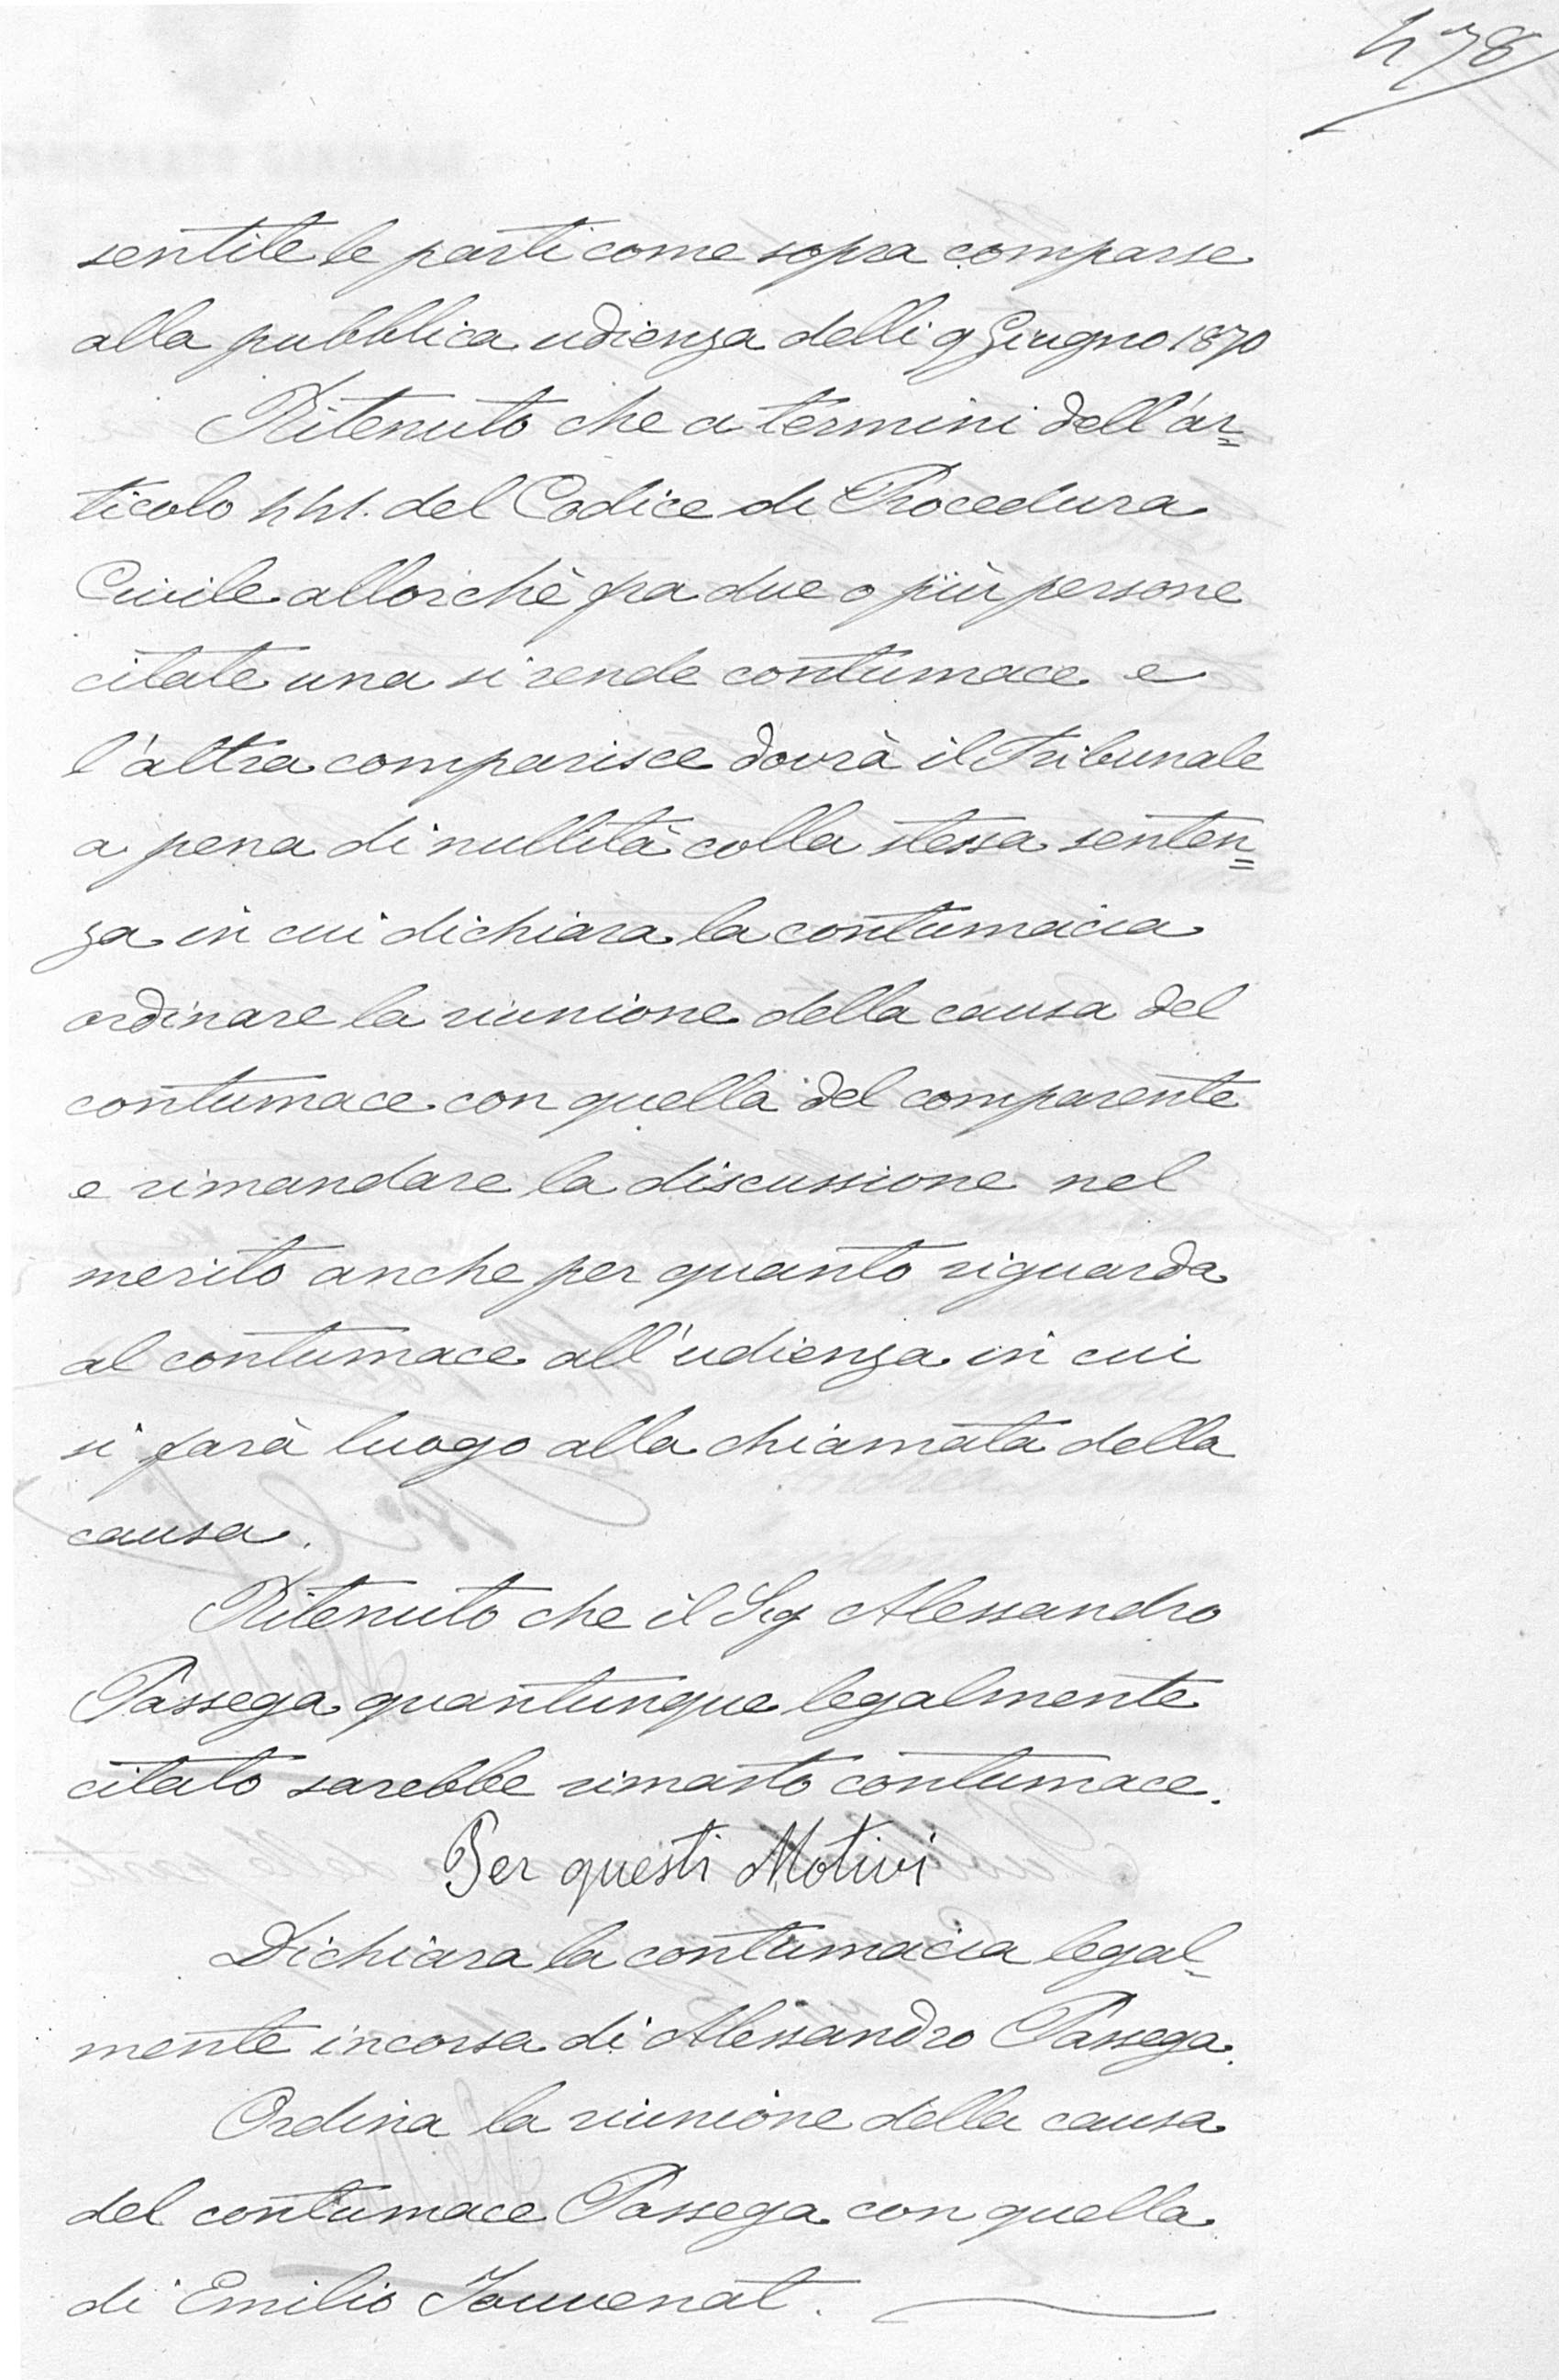 478
sentite le parti come sopra comparse
alla pubblica udienza delli 9 Giugno 1870
Ritenuto che a termini dell'ar=
ticolo 441. del Codice di Procedura
Civile allorchè fra due o più persone
citate una si rende contumace e
l'altra comparisce dovrà il Tribunale
a pena di nullità colla stessa senten=
za in cui dichiara la contumacia
ordinare la riunione della causa del
contumace con quella del comparente
e rimandare la discussione nel
merito anche per quanto riguarda
al contumace all'udienza in cui
si farà luogo alla chiamata della
causa.
Ritenuto che il Sig Alessandro
Passega quantunque legalmente
citato sarebbe rimasto contumace.
Per questi Motivi
Dichiara la contumacia legal-
mente incorsa di Alessandro Passega.
Ordina la riunione della causa
del contumace Passega con quella
di Emilio Jouvenat.